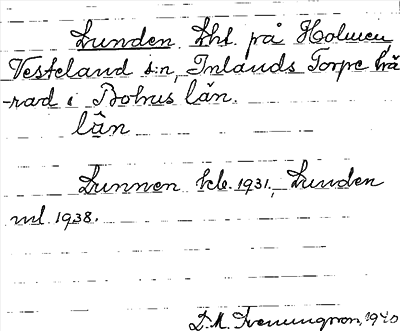 Lunden. Lht. på Holmen
Vesteland s:n, Inlands Torpe hä
-rad i Bohus län.
län
Lunnen kb. 1931, Lunden
ml. 1938.
D.M. 1940